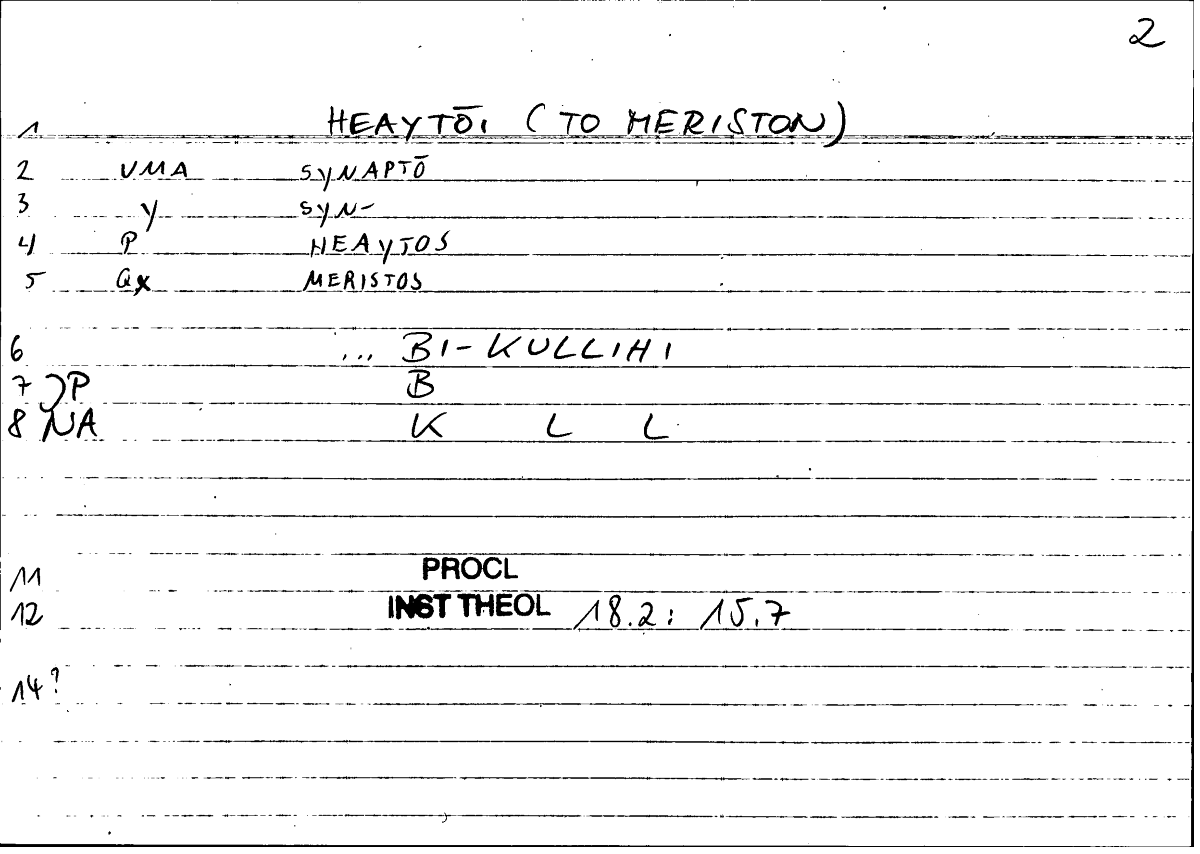 2
1 HEAYTŌI (TO MERISTON)
2 VMA SYNAPTŌ
3 Y SYN-
4 P HEAYTOS
5 Qx MERISTOS
6 ... BI-KULLIHI
7 P B
8 NA K L L
11 PROCL
12 INST THEOL 18.2: 15.7
14?